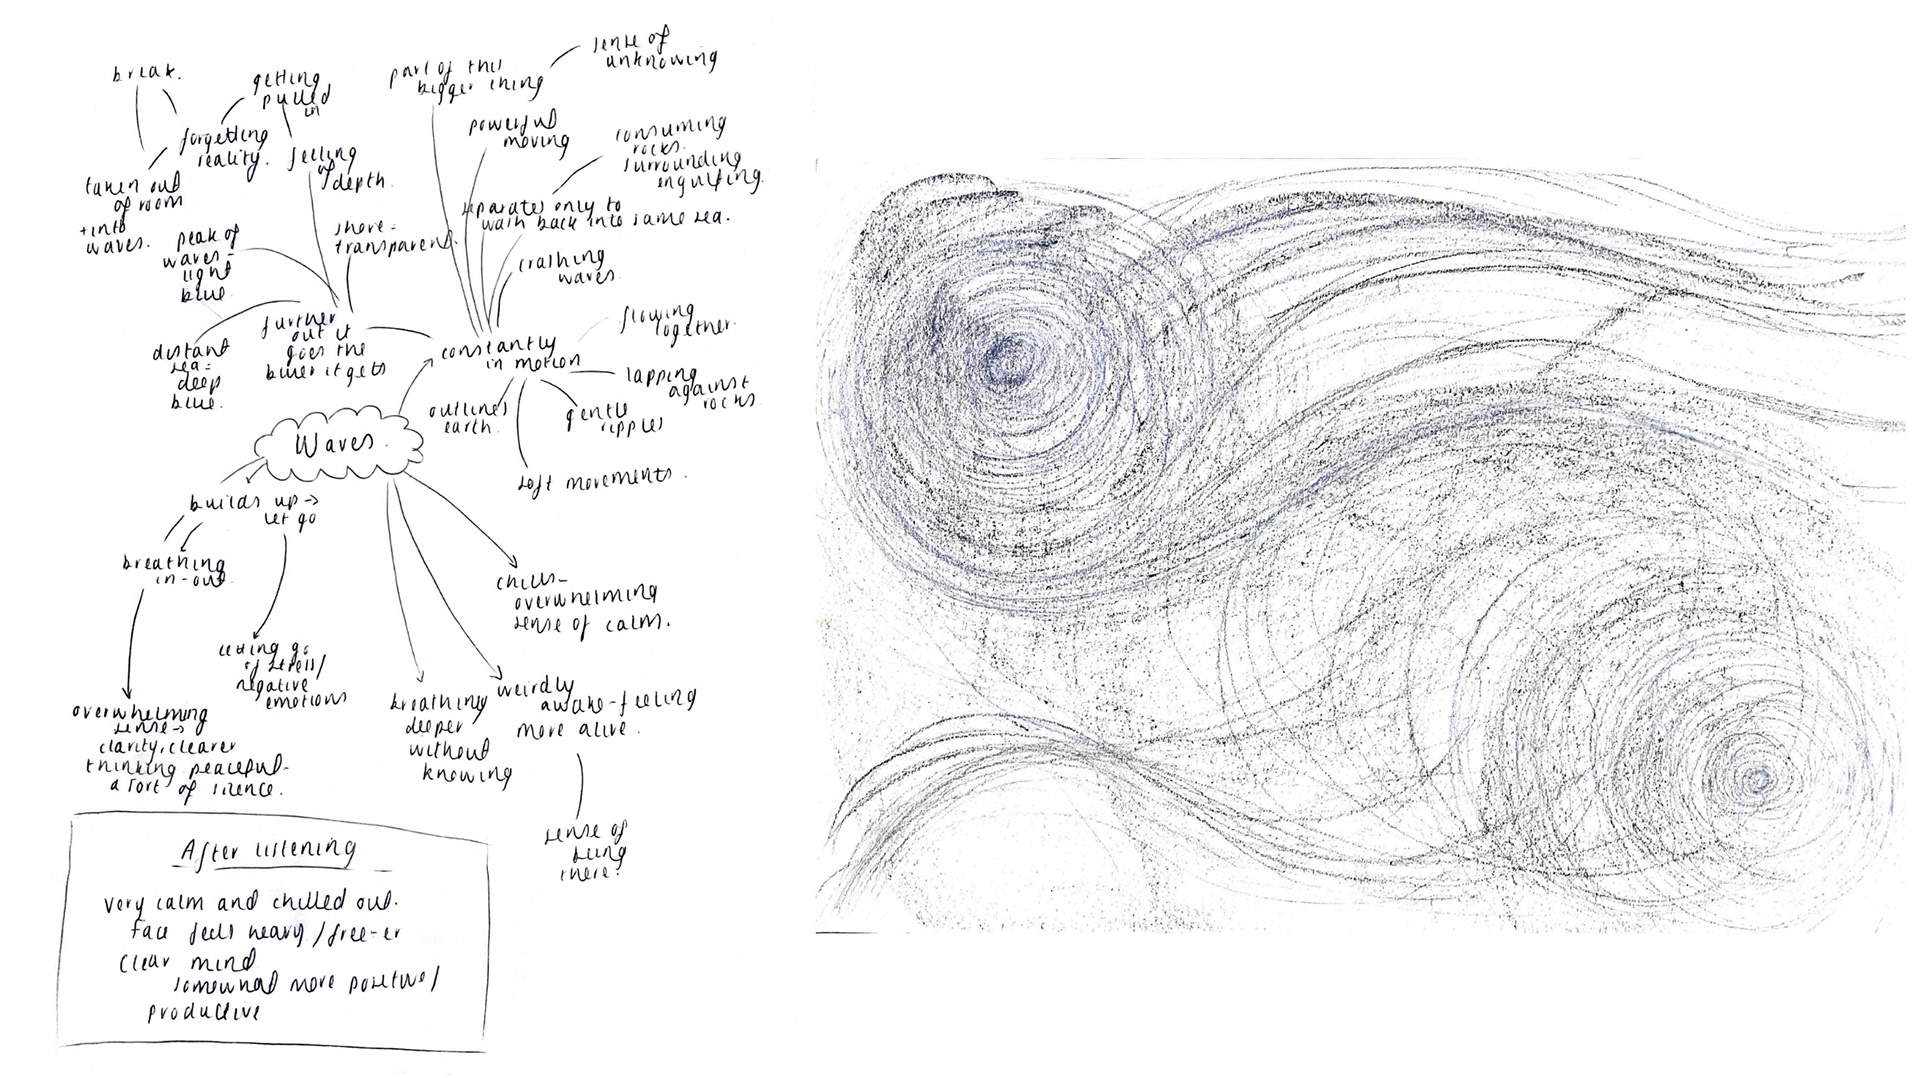 break.
getting
pulled
in
forgetting
reality.
feeling
of depth.
taken out
of room
+into
waves.
peak of
waves -
light
blue.
shore -
transparent.
distant
sea =
deep
blue.
further
out it
goes the
bluer it gets
part of this
bigger thing
sense of
unknowing
powerful
moving
consuming
rocks.
surrounding
engulfing.
separates only to
wash back into same sea.
crashing
waves.
flowing
together.
constantly
in motion
lapping
against
rocks.
outlines
earth.
gentle
ripples
soft movements.
Waves.
builds up →
let go
breathing
in-out.
letting go
of stress/
negative
emotions
overwhelming
sense →
clarity, clearer
thinking peaceful -
a sort of silence.
chills -
overwhelming
sense of calm.
breathing
deeper
without
knowing
weirdly
awake - feeling
more alive.
sense of
being
there.
After listening
very calm and chilled out.
face feels heavy/free-er
clear mind
somewhat more positive/
productive